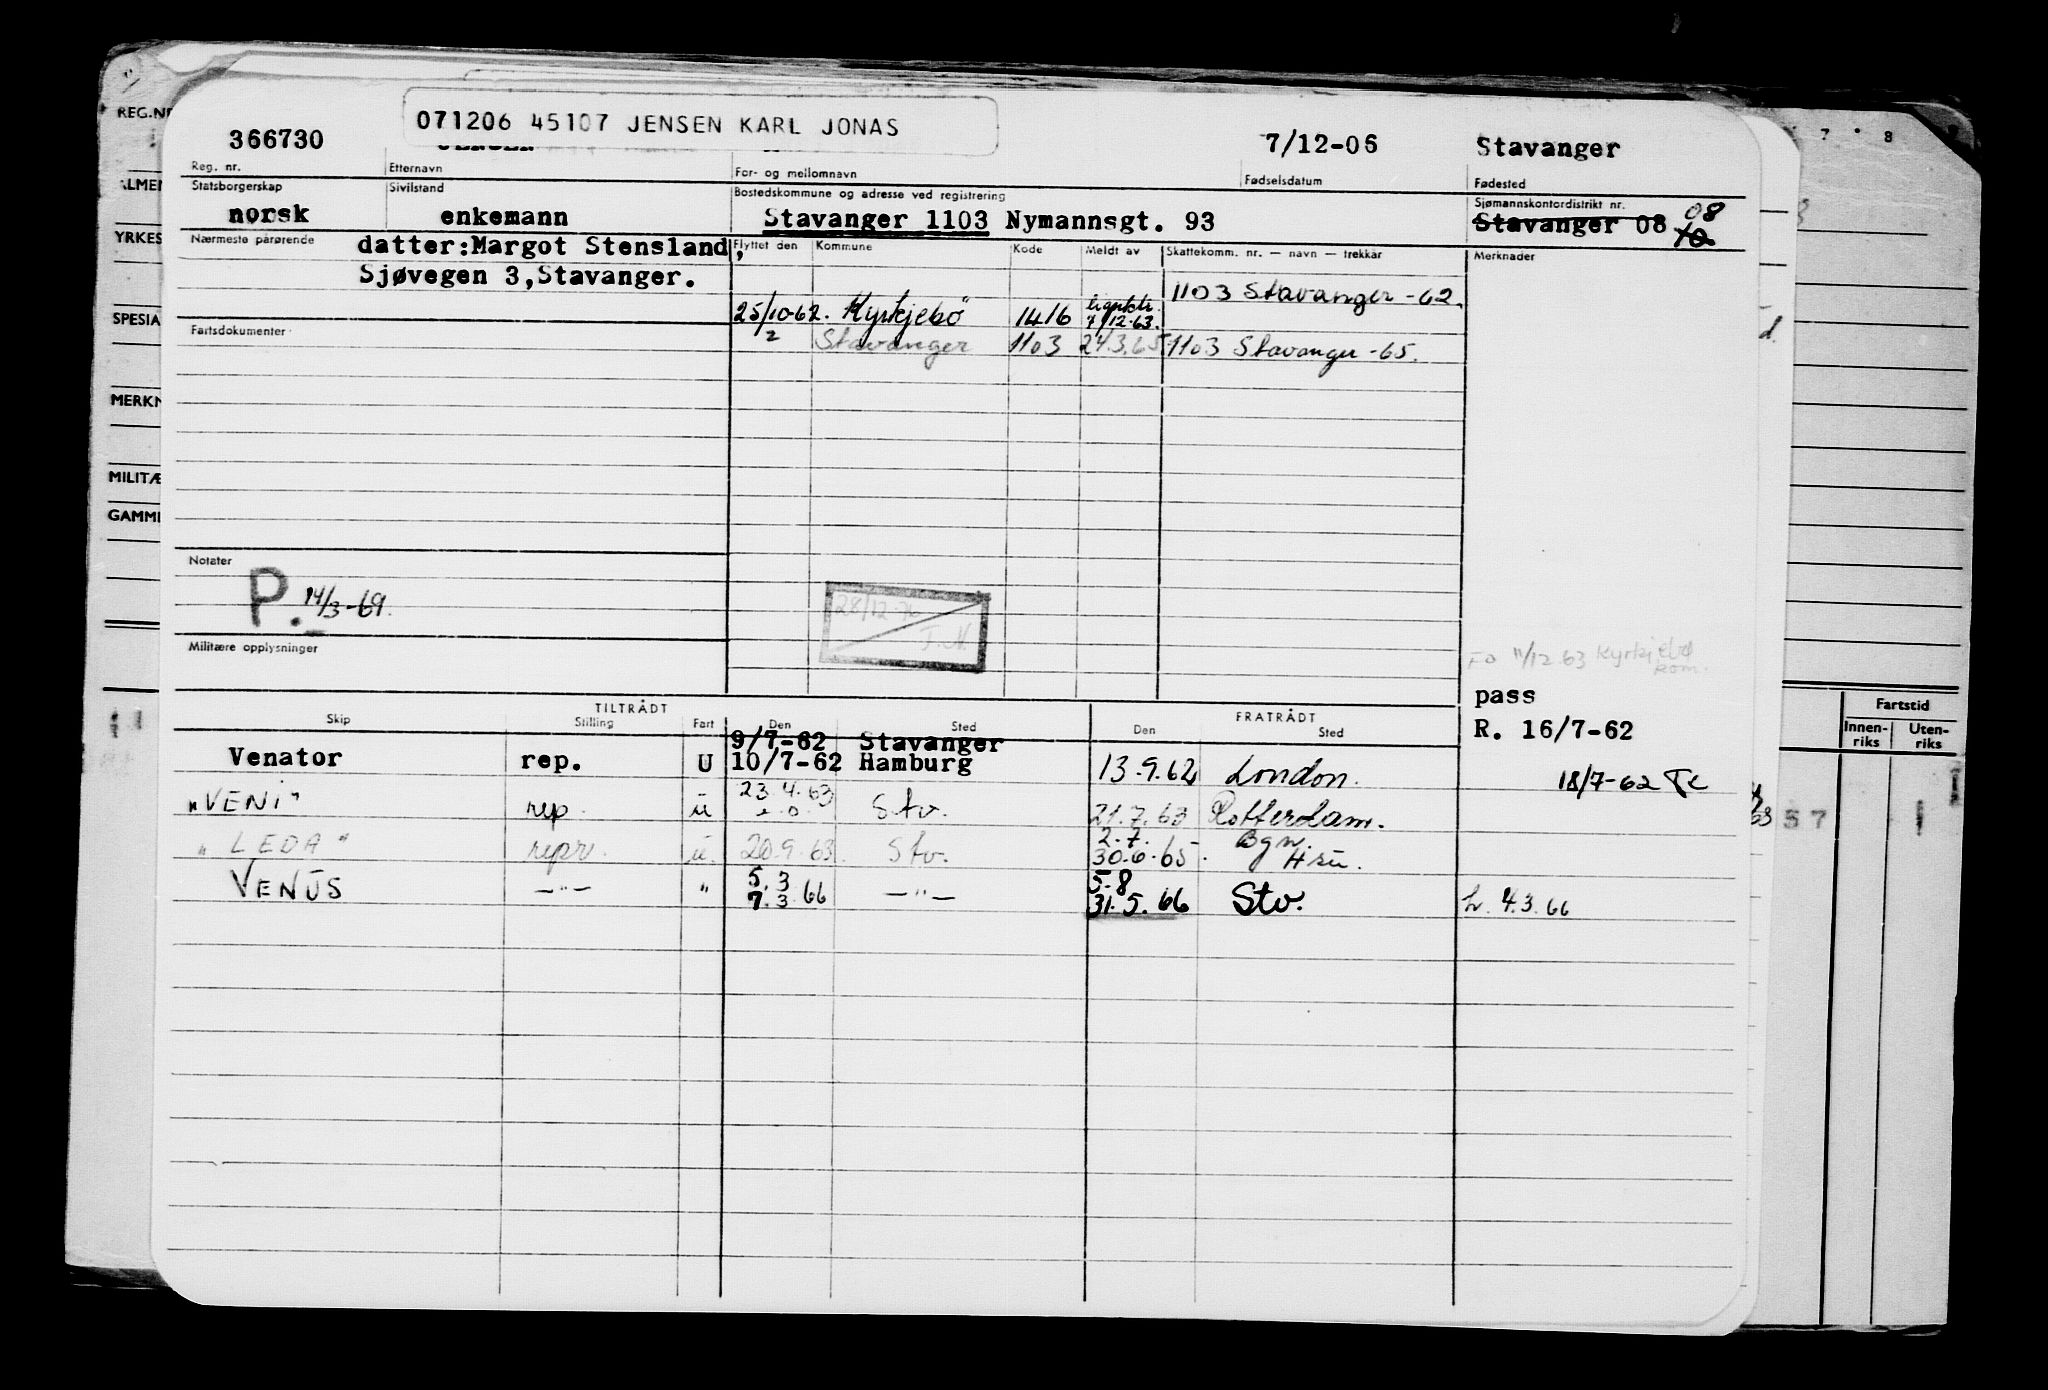 071206 45107 JENSEN KARL JONAS
366730 7/12-06 Stavanger
Reg. nr. Etternavn For- og mellomnavn Fødselsdatum Fødested
Statsborgerskap Sivilstand Bostedskommune og adresse ved registrering Sjømannskontordistrikt nr.
norsk enkemann Stavanger 1103 Nymannsgt. 93 Stavanger 08 10 08
Nærmeste pårørende datter:Margot Stensland, Flyttet den Kommune Kode Meldt av Skattekomm. nr. — navn — trekkår Merknader
Sjøvegen 3,Stavanger.
1103 Stavanger -62.
25/10-62. Kyrkjebö 1416 7/12-63.
Fartsdokumenter
1/2 Stavanger 1103 24.3.65 1103 Stavanger -65.
Notater
P. 14/3-69.
28/12-76
T.N.
Militære opplysninger
Fo 11/12 63 Kyrkjebø
kom.
pass
R. 16/7-62
18/7-62
TILTRÅDT FRATRÅDT
Skip Stilling Fart Den Sted Den Sted
9/7-62 Stavanger
Venator rep. U 10/7-62 Hamburg 13.9.62 London.
"VENI" rep. u 23.4.63 Stv. 21.7.63 Rotterdam.
2.7. Bgn.
"LEDA" repr. u. 20.9.63. Stv. 30.6.65. Hsu.
5.3 5-8
VENUS —"— " 7.3.66 —"— 31.5.66 Stv. L. 4.3.66
REG.NR
ALMEN
YRKES
SPESIA
MERKN
MILITÆ
GAMME
7 8
d.
Fartstid
Innen-
riks
Uten-
riks
63 57